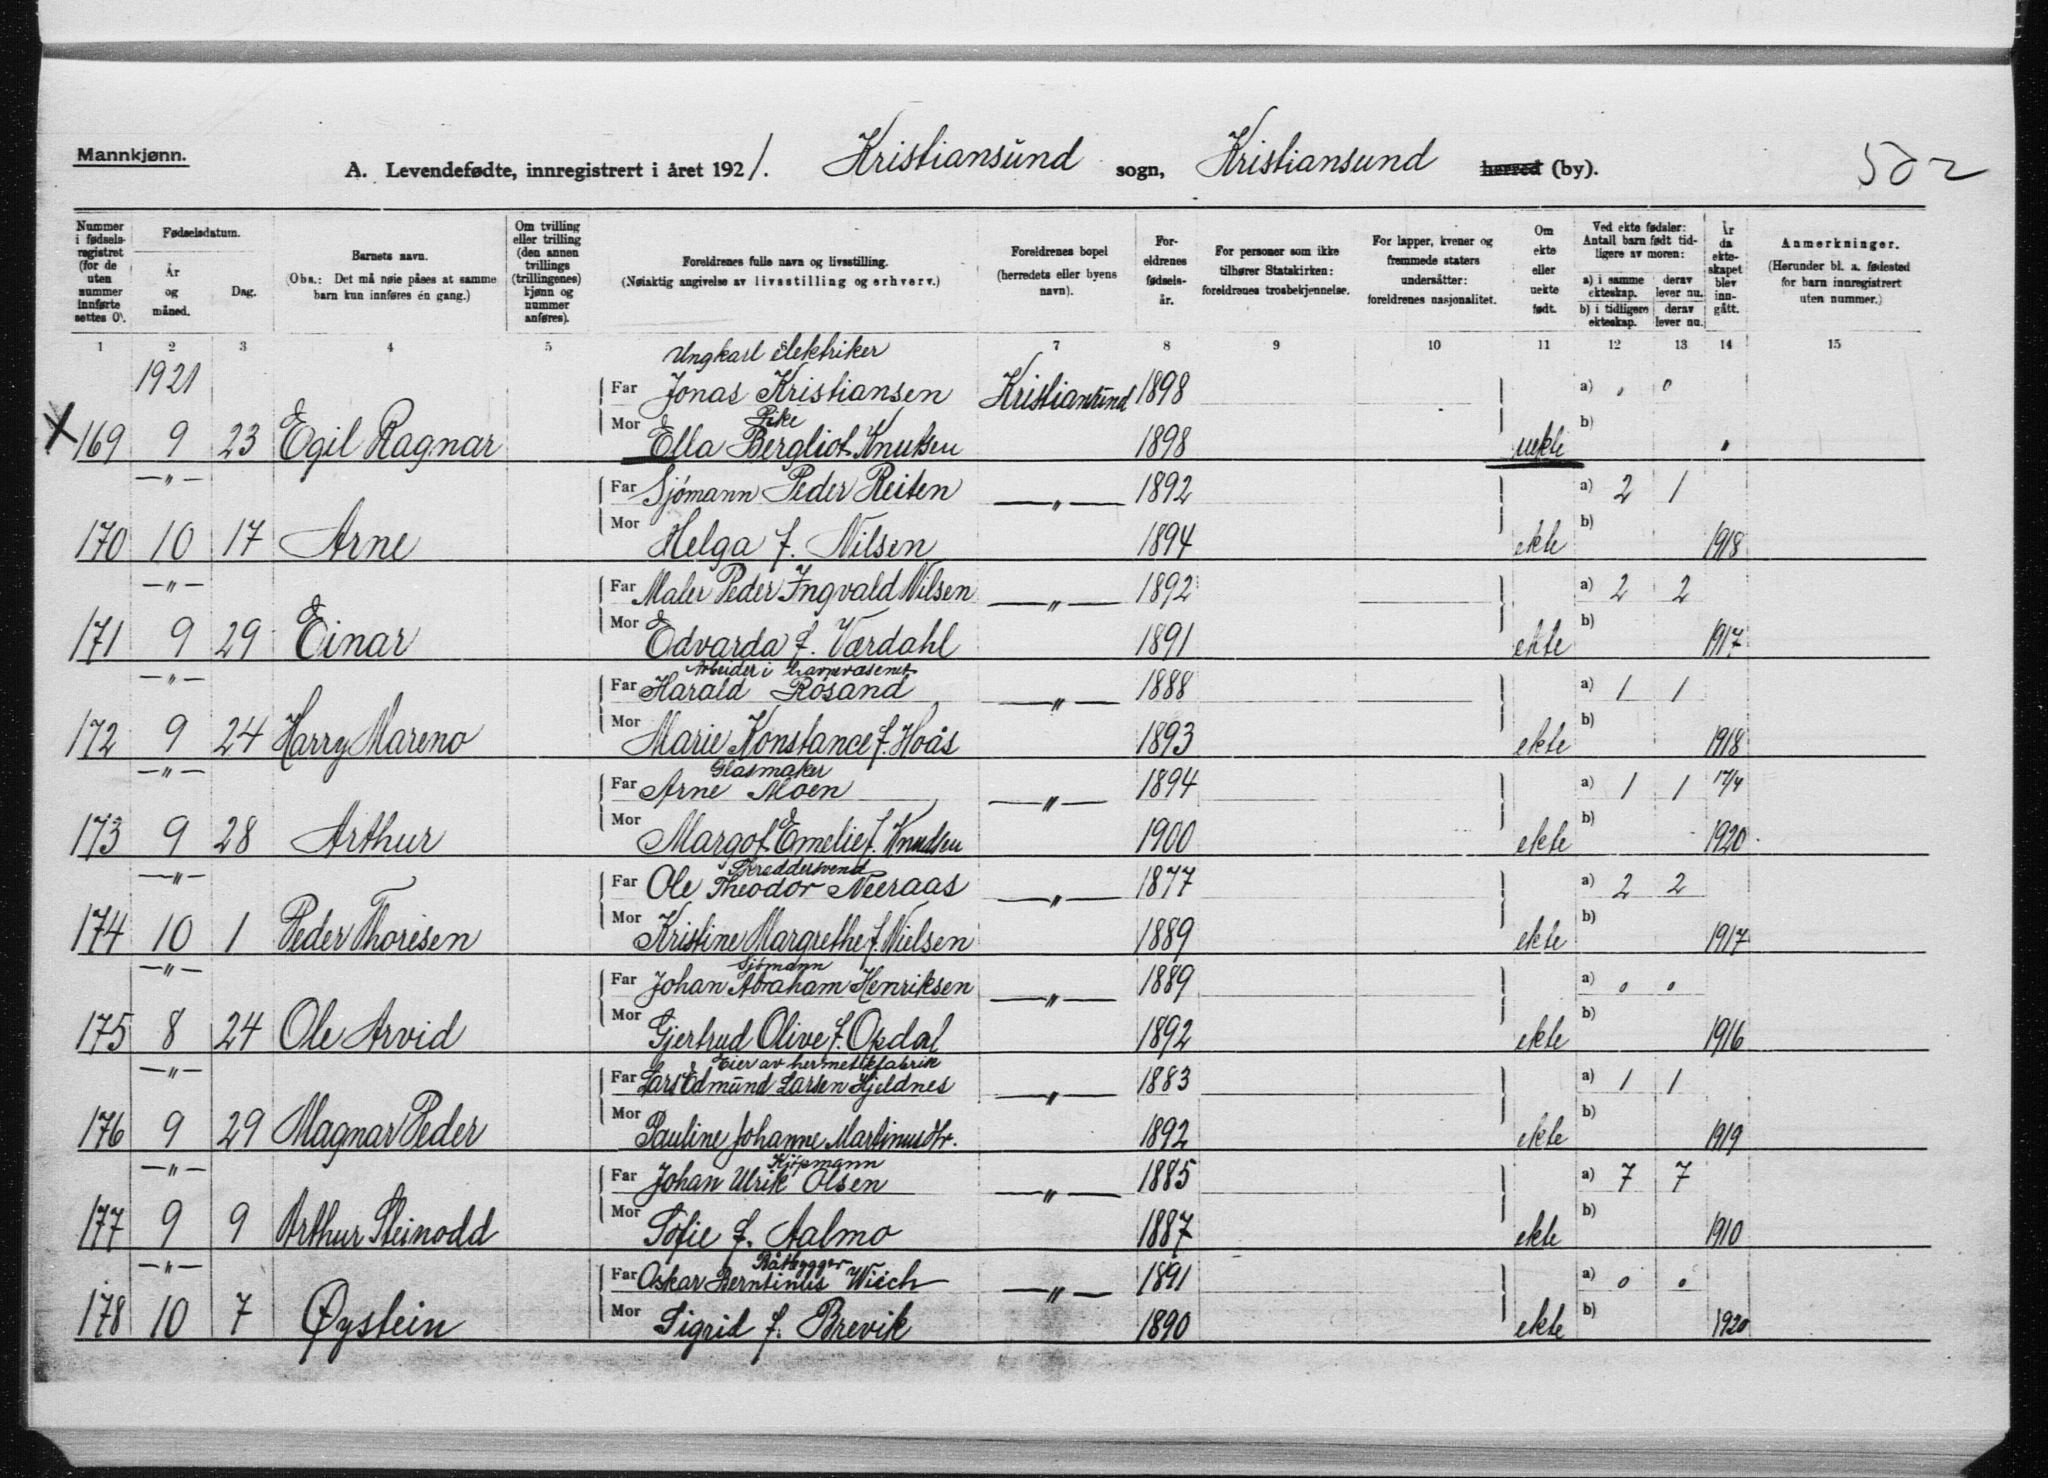 Mannkjønn.
A. Levendefødte, innregistrert i året 1921. Kristiansund sogn, Kristiansund herred (by).
502
Nummer i fødsels-registret (for de uten nummer innførte settes 0).
Fødselsdatum.
År og måned.
Dag.
Barnets navn.
(Obs.: Det må nøie påses at samme barn kun innføres én gang.)
Om tvilling eller trilling (den annen tvillings (trillingenes) kjønn og nummer anføres).
Foreldrenes fulle navn og livsstilling.
(Nøiaktig angivelse av livsstilling og erhverv.)
Foreldrenes bopel (herredets eller byens navn).
For-eldrenes fødsels-år.
For personer som ikke tilhører Statskirken: foreldrenes trosbekjennelse.
For lapper, kvener og fremmede staters undersåtter: foreldrenes nasjonalitet.
Om ekte eller uekte født.
Ved ekte fødsler: Antall barn født tid-ligere av moren:
a) i samme ekteskap. derav lever nu.
b) i tidligere ekteskap. derav lever nu.
År da ekte-skapet blev inn-gått.
Anmerkninger.
(Herunder bl. a. fødested for barn innregistrert uten nummer.)
1 2 3 4 5 7 8 9 10 11 12 13 14 15
1921
Ungkarl elektriker
Far Jonas Kristiansen Kristiansund 1898 a) 0 0
Pike
X 169 9 23 Egil Ragnar Mor Ella Bergliot Knutsen 1898 uekte b) "
—"— Far Sjömann Peder Reiten —"— 1892 a) 2 1
170 10 17 Arne Mor Helga f. Nilsen 1894 ekte b) 1918
—"— Far Maler Peder Ingvald Nilsen —"— 1892 a) 2 2
171 9 29 Einar Mor Edvarda f. Værdahl 1891 ekte b) 1917
Arbeider i havnevæsenet
—"— Far Harald Røsand —"— 1888 a) 1 1
172 9 24 Harry Mareno Mor Marie Konstance f. Hoås 1893 ekte b) 1918
Glasmaker
—"— Far Arne Moen —"— 1894 a) 1 1 17/4
173 9 28 Arthur Mor Margot Emelie f. Knudsen 1900 ekte b) 1920
Skreddersvend
—"— Far Ole Theodor Neeraas —"— 1877 a) 2 2
174 10 1 Peder Thoresen Mor Kristine Margrethe f. Nielsen 1889 ekte b) 1917
Sjömann
—"— Far Johan Abraham Henriksen —"— 1889 a) 0 0
175 8 24 Ole Arvid Mor Gjertrud Olive f. Opdal 1892 ekte b) 1916
Eier av hermetikfabrik
—"— Far Lars Edmund Larsen Hjeldnes —"— 1883 a) 1 1
176 9 29 Magnar Peder Mor Pauline Johanne 1892 ekte b) 1919
Kjøpmann
—"— Far Johan Ulrik Olsen —"— 1885 a) 7 7
177 9 9 Arthur Steinodd Mor Sofie f. Aalmo 1887 ekte b) 1910
Båtbygger
—"— Far Oskar Berntinus Wiich —"— 1891 a) 0 0
178 10 7 Øystein Mor Sigrid f. Brevik 1890 ekte b) 1920